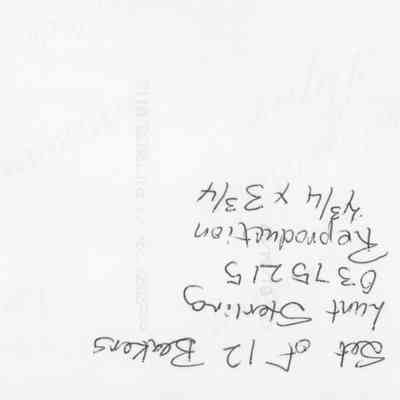 Set of 12 Beakers
Lunt Sterling
0375215
Reproduction
3/4 x 3 3/4